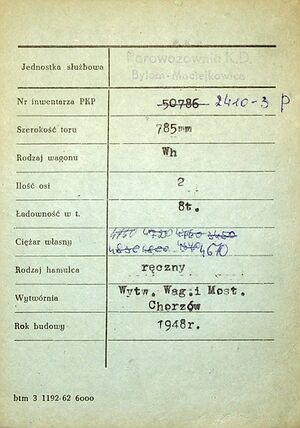 Parowozownia K.D.
Jednostka służbowa Bytom-Maciejkowice
Nr inwentarza PKP 50786 2410-3 P
Szerokość toru 785mm
Rodzaj wagonu Wh
Ilość osi 2
Ładowność w t. 8t.
Ciężar własny 4610
Rodzaj hamulca ręczny
Wytwórnia Wytw. Wag.i Most.
Chorzów
Rok budowy 1948r.
btm 3 1192-62 6000